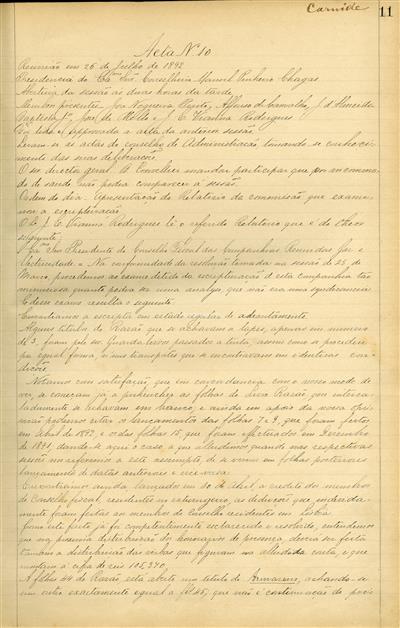 Carnide 11
Acta Nº 10
Reunião em 26 de Julho de 1892
Presidencia do Exmo Snr. Conselheiro Manoel Pinheiro Chagas
Abertura da sessão ás duas horas da tarde
Membros presentes José Nogueira Pinto, Affonso de Carvalho, J. d'Almeida
José de Mello e J. E. Vianna Rodrigues
Foi lida e approvada a acta da anterior sessão.
Leram-se as actas do conselho de Administracção, tomando-se conheci-
mento das suas deliberações.
O snr director geral B. Knowlhees mandou participar que por encommo-
do de saude não podia comparecer á sessão.
Ordem do dia: Apresentação do Relatorio da commissão, que exami-
nou a escripturação.
O Sr J. E. Vianna Rodrigues leu o referido Relatorio que é do theor
seguinte
Exmo Snr. Presidente do Conselho Fiscal das Companhias Reunidas Gaz e
Electricidade = Na conformidade da resolução tomada na sessão de 25 de
Março, procedemos ao exame detido da escripturação d'esta companhia, tão
minuciosa quanto podia ser uma analyse que não era uma syndicancia
E desse exame resulta o seguinte
Encontramos a escripta em estado regular de adeantamento.
Alguns titulos do Razão que se achavam a lapis, apenas em numero
de 3, foram pelo snr. Guarda livros passados a tinta, assim como se procedeu
por egual forma a uns transportes que se encontravam em identicas con-
dições.
Notamos com satisfação, que em concordancia com o nosso modo de
ver, a começam já a preencher as folhas do livro Razão, que interca-
ladamente se achavam em branco, e ainda em apoio da nossa opi-
nião podemos citar os lançamentos das folhas 7 e 9, que foram feitos
em Abril de 1892, e o das folhas 15, que foram effectuados em Dezembro
de 1891, dando-se aqui o caso a que alludimos quando nas respectivas
sessões nos referimos a este assumpto, de se verem em folhas posteriores
lançamentos de dattas anteriores e vice versa.
Encontramos ainda lançados em 30 de Abril a credito dos membros
do Conselho fiscal, residentes no extrangeiro, as deducções que indevida-
mente foram feitas aos membros do Conselho residentes em Lisboa
Como este ponto já foi competentemente esclarecido e resolvido, entendemos
que na proxima distribuição dos honorarios de presença, devia ser feita
tambem a distribuição das verbas que figuram na alludida conta, e que
montam á cifra de reis 105,390.
A folhas 44 do Razão está aberto um titulo de Armazem, achando-se
um outro exactamente equal a fl. 45, que não é continuação do pri-